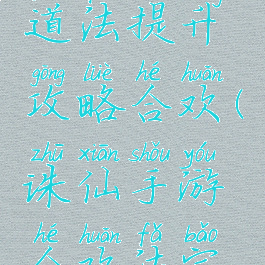 道法提升
gōng lüè hé huān
攻略合欢(
zhū xiān shǒu yóu
诛仙手游
hé huān fǎ bǎo
合欢法宝